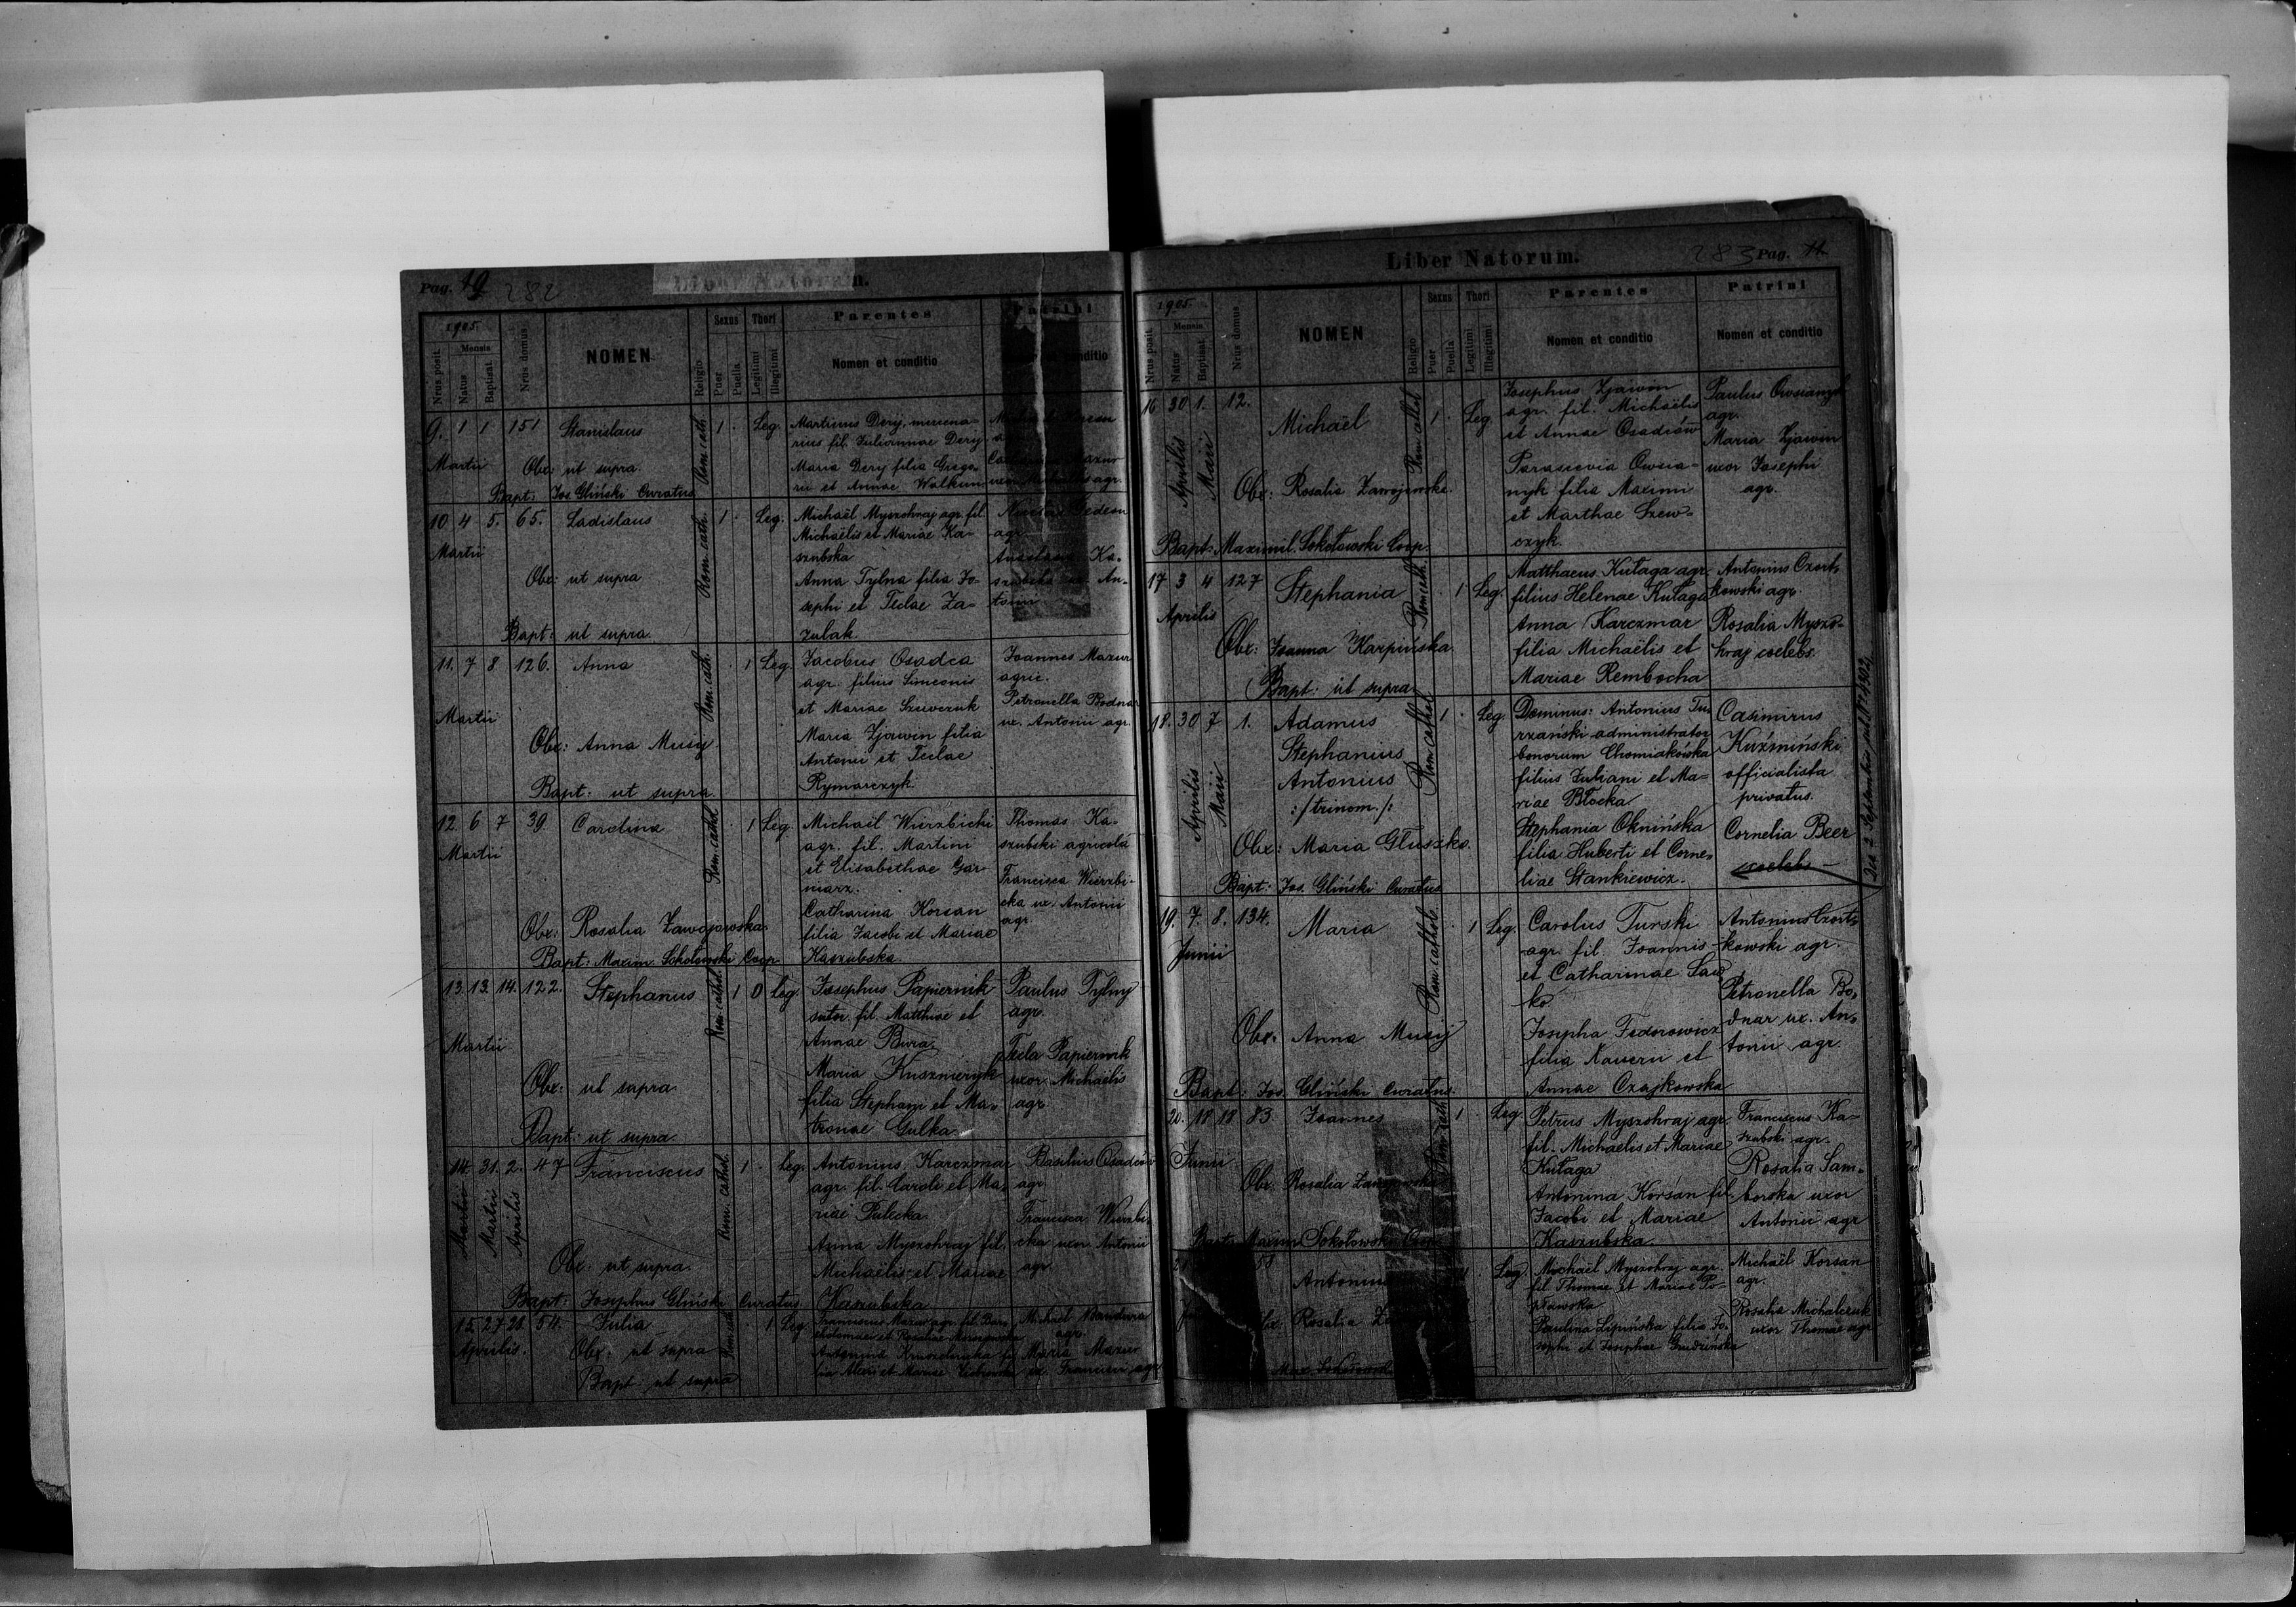 Pag. 10 282
Liber Natorum.
1905.
Nrus posit.
Mensis
Natus
Baptisat.
Nrus domus
NOMEN
Religio
Sexus
Puer
Puella
Thori
Legitimi
Illegitimi
Parentes
Nomen et conditio
Patrini
9. 1 1 151 Stanislaus Rom. cath. 1 · Leg.
Martii
Obs: ut supra.
Bapt: Jos. Gliński Curatus
Martinus Dery, mercena-
rius fil. Juliannae Dery
Maria Dery filia Grego-
rii et Annae Walkun
uxor Michaelis agr.
10 4 5. 65. Ladislaus Rom. cath. 1 · Leg.
Martii
Obs: ut supra
Bapt: ut supra.
Michaël Myszohraj agr. fil.
Michaëlis et Mariae Ka-
szubska
Anna Tylna filia Jo-
sephi et Teclae Za-
zulak
Gedeon
agr.
Anastasia Ka-
szubska ux. An-
tonii
11. 7 8 126. Anna Rom. cath. · 1 Leg.
Martii
Obs: Anna Musij
Bapt: ut supra.
Jacobus Osadca
agr. filius Simeonis
et Mariae Szewczuk
Maria Zjawin filia
Antonii et Teclae
Rymarczyk.
Joannes Mazur
agric.
Petronella Bodnar
ux. Antonii agr.
12 6 7 39 Carolina Rom. cathol. · 1 Leg.
Martii
Obs: Rosalia Zawojowska
Bapt: Maxim. Sokołowski Coop.
Michaël Wierzbicki
agr. fil. Martini
et Elisabethae Gar-
niarz.
Catharina Korsan
filia Jacobi et Mariae
Kaszubska.
Thomas Ka-
szubski agricola
Francisca Wierzbi-
cka ux. Antonii
agr.
13. 13. 14. 122. Stephanus Rom. cathol. 1 0 Leg.
Martii
Obs: ut supra
Bapt: ut supra
Josephus Papiernik
sutor fil. Matthiae et
Annae Bura
Maria Kusznieryk
filia Stephani et Ma-
tronae Gulka
Paulus Tylny
agr.
Tecla Papiernik
uxor Michaëlis
agr.
14. 31. 2. 47 Franciscus Rom. cathol. 1 · Leg.
Martii Martii Aprilis
Obs: ut supra.
Bapt: Josephus Gliński Curatus
Antonius Karczmar
agr. fil. Caroli et Ma-
riae Pulecka
Anna Myszohraj fil.
Michaëlis et Mariae
Kaszubska
Basilius Osadców
agr.
Francisca Wierzbi-
cka uxor Antonii
agr.
15 27 28. 54. Julia · 1 Leg.
Aprilis.
Obs: ut supra
Bapt: ut supra
Franciscus Mazur agr. fil. Bar-
tholomaei et Rosaliae
Antonina
Michaël Bandura
agr.
Maria Mazur
ux. Francisci agr.
Liber Natorum. 283 Pag. 11
1905.
Nrus posit.
Mensis
Natus
Baptisat.
Nrus domus
NOMEN
Religio
Sexus
Puer
Puella
Thori
Legitimi
Illegitimi
Parentes
Nomen et conditio
Patrini
Nomen et conditio
16 30 1. 12. Michaël 1 · Leg.
Aprilis Maii
Obs: Rosalia Zawojowska.
Bapt: Maximil. Sokołowski Coop.
Josephus Zjawin
agr. fil. Michaëlis
et Annae Osadców
Parascevia Owsia-
nyk filia Maximi
et Marthae Szew-
czyk.
Paulus Owsianyk
agr.
Maria Zjawin
uxor Josephi
agr.
17 3 4 127 Stephania Rom. cath. · 1 Leg.
Aprilis
Obs: Joanna Karpińska
Bapt: ut supra
Matthaeus Kułaga agr.
filius Helenae Kułaga
Anna Karczmar
filia Michaëlis et
Mariae Rembocha
Antonius Czort-
kowski agr.
Rosalia Myszo-
hraj coelebs.
18. 30 7 1. Adamus Rom. cathol. 1 · Leg.
Stephanius
Antonius
:/trinom./:
Aprilis Maii
Obs: Maria Głuszko.
Bapt: Jos. Gliński Curatus
Dominus: Antonius Tu-
rzański administrator
bonorum Chomiakówka
filius Juliani et Ma-
riae Błocka
Stephania Oknińska
filia Huberti et Corne-
liae Stankiewicz.
Casimirus
Kuźmiński
officialista
privatus.
Cornelia Beer
coelebs
19. 7. 8. 134. Maria Rom. cathol. · 1 Leg.
Junii
Obs: Anna Musij
Bapt: Jos. Gliński Curatus.
Carolus Turski
agr. fil. Joannis
et Catharinae Saw
ko
Josepha Fedorowicz
filia Xaverii et
Annae Czajkowska
Antonius Czort-
kowski agr.
Petronella Bo-
dnar ux. An-
tonii agr.
20. 18 18 83. Joannes 1 · Leg.
Junii
Obs. Rosalia Zawojowska
Bapt: Maxim Sokołowski Coop.
Petrus Myszohraj agr.
fil. Michaelis et Mariae
Kułaga
Antonina Korsan fil.
Jacobi et Mariae
Kaszubska.
Franciscus Ka-
szubski agr.
Rosalia Sam-
borska uxor
Antonii agr
21 58 Antonius Leg.
Obs. Rosalia
Max. Sokołowski
Michaël Myszohraj agr.
fil Thomae et Mariae Po-
pławska
Paulina Lipińska filia Jo-
sephi et Josephae Grudzińska
Michaël Korsan
agr.
Rosalia Michalczuk
uxor Thomae agr